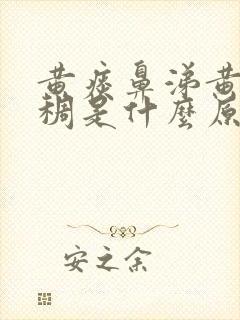 黄痰鼻涕黄
稠是什麼原
安之余